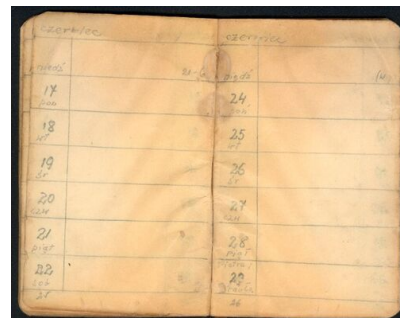 czerwiec
17
pon
18
wt
19
śr
20
czw
21
piąt
22
sob
czerwiec
24
pon
25
wt
26
śr
27
czw
28
piąt
29
26